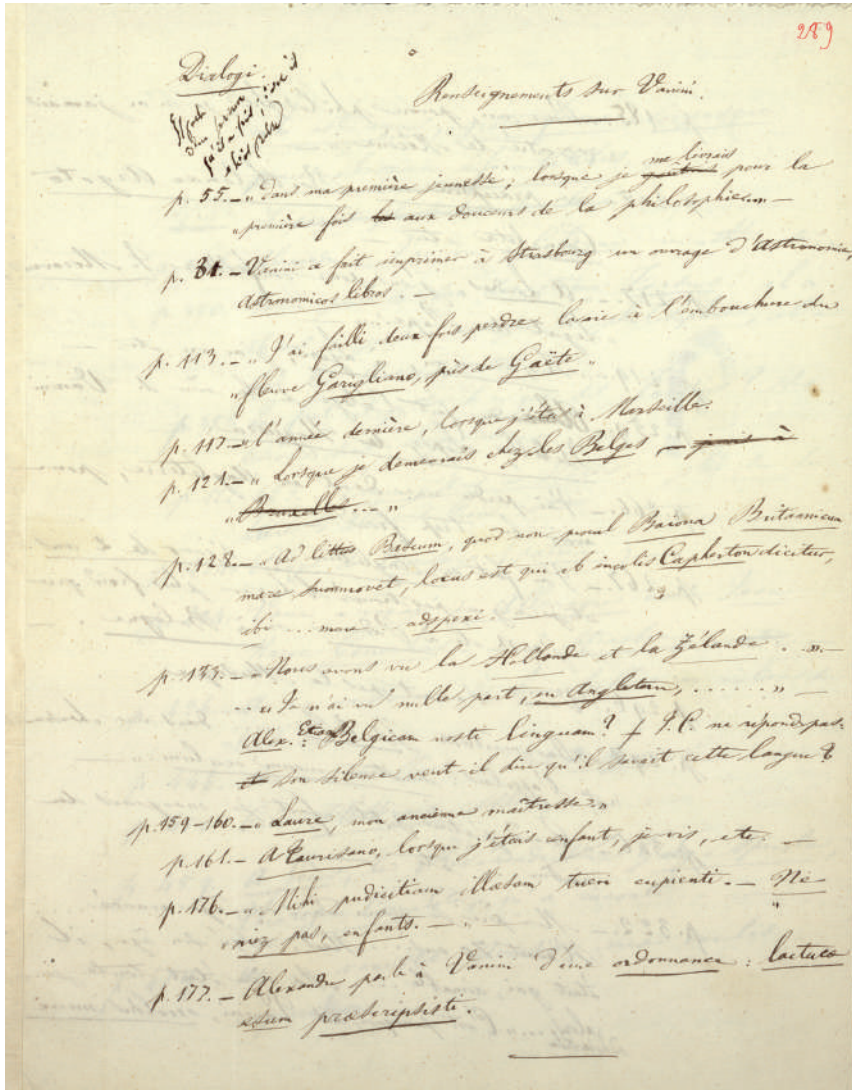 289
Dialogi.
Renseignements sur Vanini.
p. 55. — « dans ma première jeunesse, lorsque je goutais me livrais pour la
« première fois les aux douceurs de la philosophie... » —
p. 31. — Vanini a fait imprimer à Strasbourg un ouvrage d'Astronomie,
Astronomicos libros. —
p. 113. — « J'ai failli deux fois perdre la vie à l'embouchure du
« fleuve Garigliano, près de Gaëte »
p. 117. — « l'année dernière, lorsque j'étais à Marseille.
p. 121. — « Lorsque je demeurais chez les Belges — j'avais à
« Bruxelles... »
p. 128. — « Ad littus Bascum, quod non procul Baiona Britannicum
mare summovet, locus est qui ab incolis Capberton dicitur,
ibi ... mare .. adspexi. —
p. 133. — « Nous avons vu la Hollande et la Zélande . . ». —
... « Je n'ai vu nulle part, en Angleterre, ...... » —
Alex. : Etiam Belgicam noste linguam? J. C. ne répond pas.
son silence veut-il dire qu'il savait cette langue?
p. 159-160. — « Laure, mon ancienne maîtresse. »
p. 161. — A Taurisano, lorsque j'étais enfant, je vis, etc. —
p. 176. — « Mihi pudicitiam illæsam tueri cupienti. — Ne
« riez pas, enfants. — »
p. 177. — Alexandre parle à Vanini d'une ordonnance : lactucæ
esum præscripsisti.